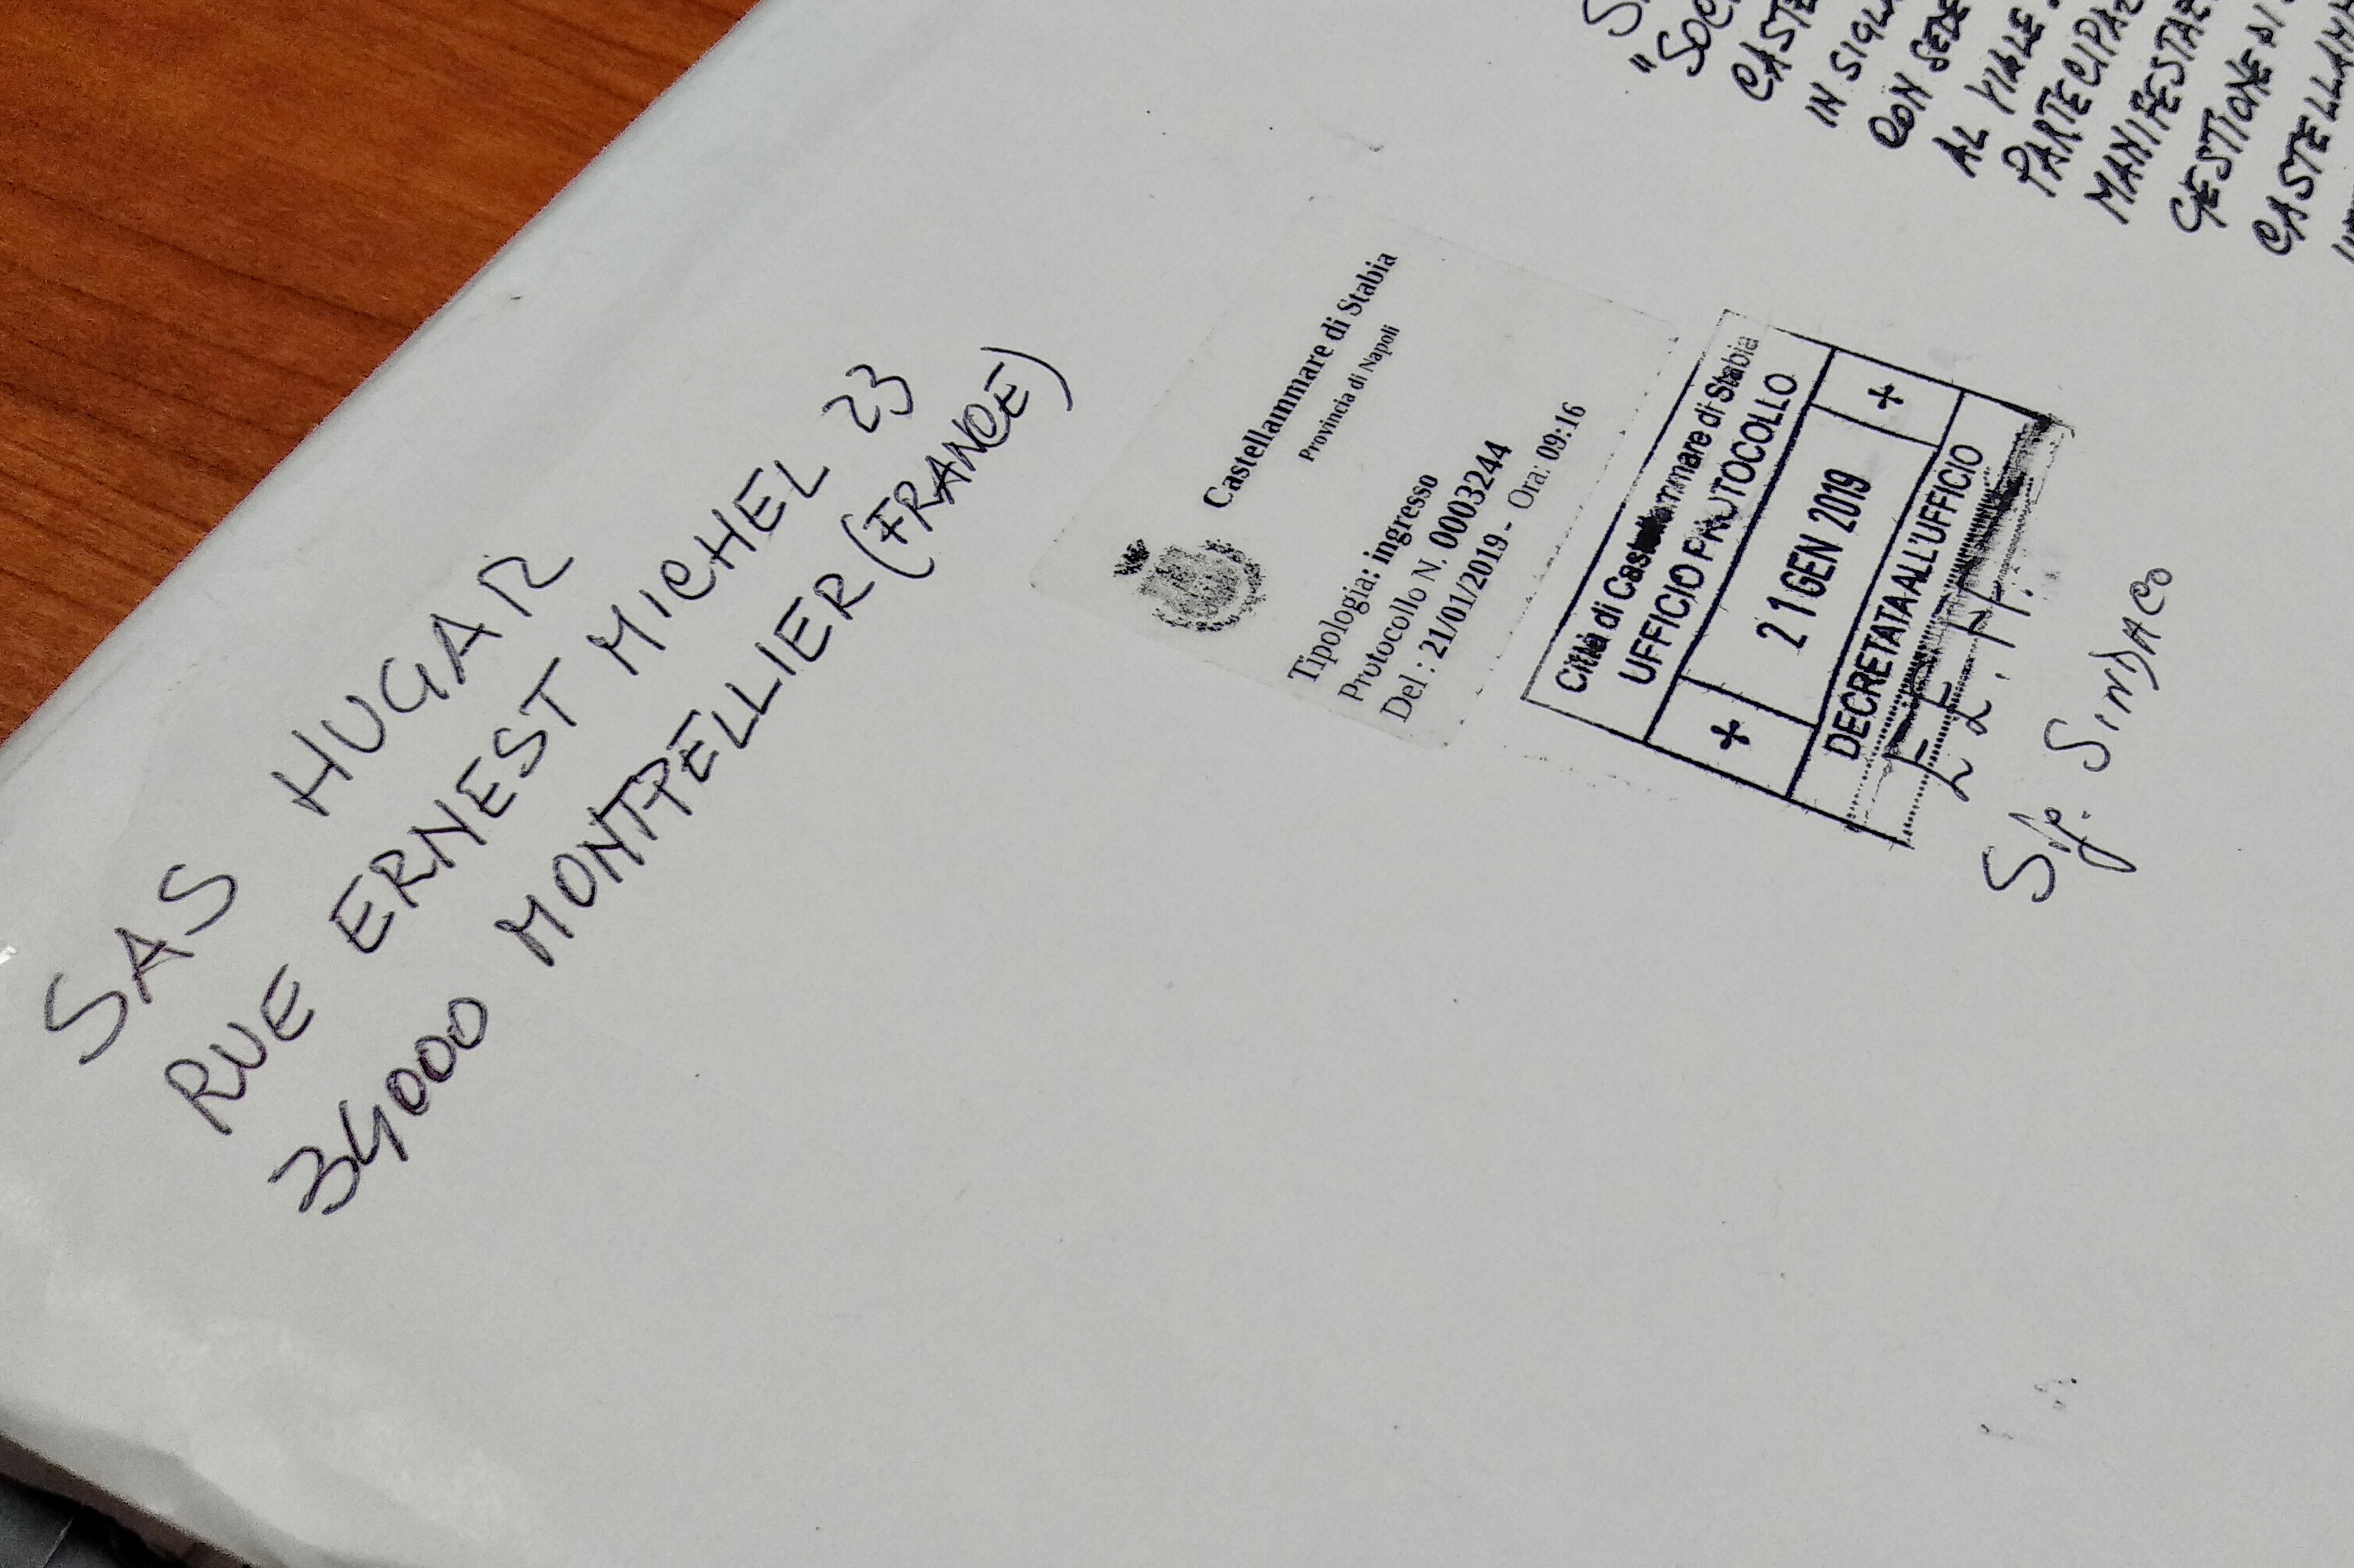 SAS HUGAR
RUE ERNEST MICHEL 23
34000 MONTPELLIER (FRANCE)
Castellammare di Stabia
Provincia di Napoli
Tipologia: ingresso
Protocollo N. 0003244
Del : 21/01/2019 - Ora: 09:16
Città di Castellammare di Stabia
UFFICIO PROTOCOLLO
21 GEN 2019
DECRETATA ALL'UFFICIO
SINDACO
"SOC
CASTE
IN SIGLA
CON SEDE
AL VIALE
PARTECIPAZ
MANIFESTAZ
GESTIONE DI
CASTELLAMM